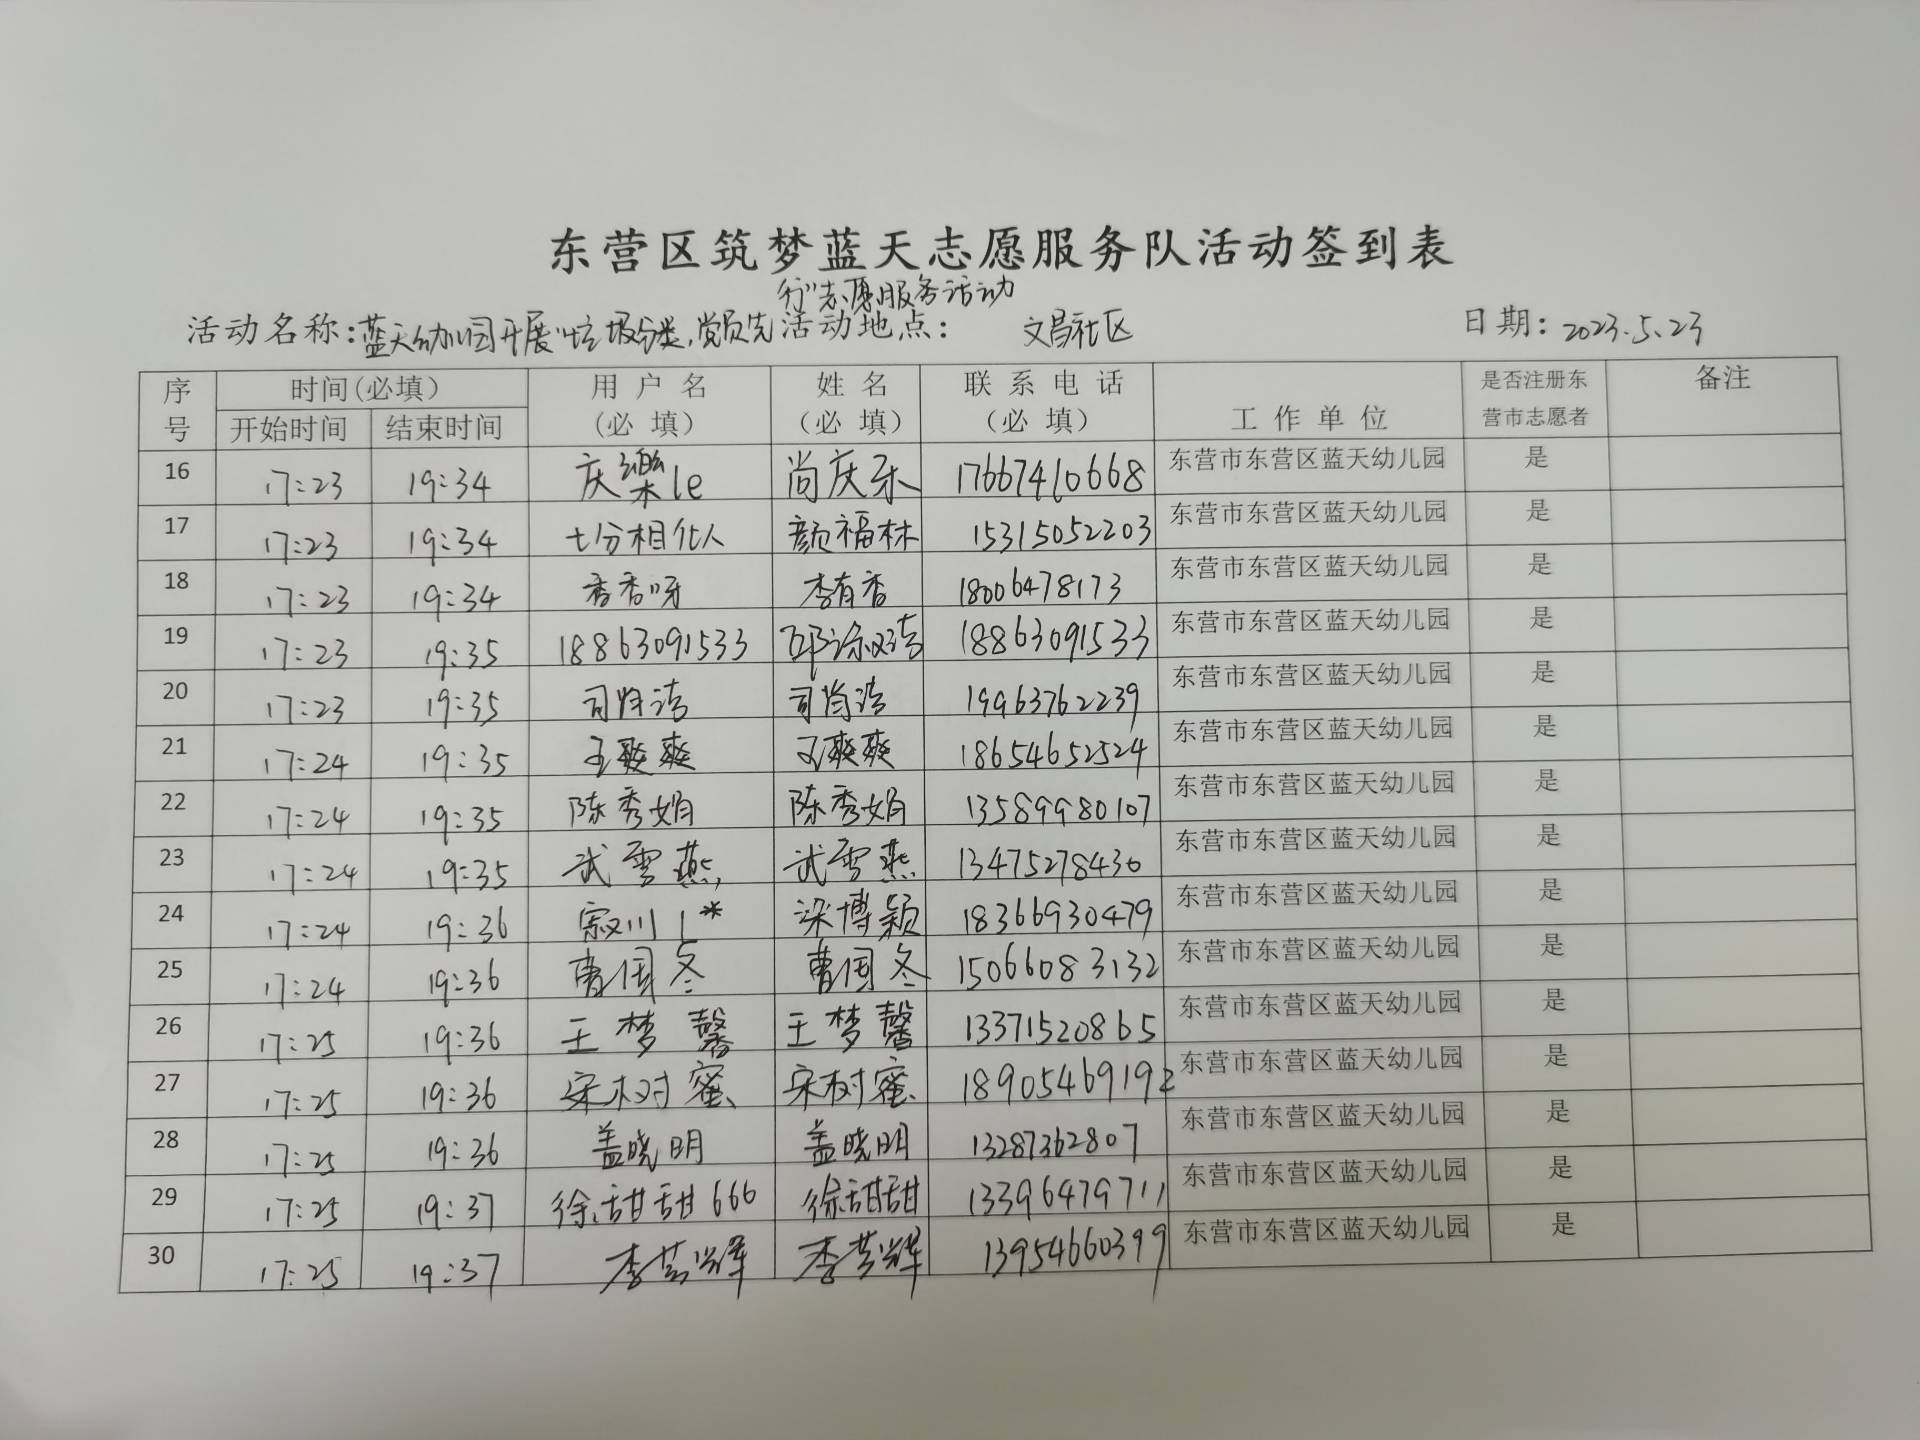 东营区筑梦蓝天志愿服务队活动签到表
行"志愿服务活动
活动名称:蓝天幼儿园开展"垃圾分类,党员先 活动地点: 文昌社区 日期: 2023.5.23
序号 时间(必填) 用户名(必填) 姓名(必填) 联系电话(必填) 工作单位 是否注册东营市志愿者 备注
开始时间 结束时间
16 17:23 19:34 庆樂le 尚庆乐 17667410668 东营市东营区蓝天幼儿园 是
17 17:23 19:34 七分相似人 颜福林 15315052203 东营市东营区蓝天幼儿园 是
18 17:23 19:34 香香呀 李有香 18006478173 东营市东营区蓝天幼儿园 是
19 17:23 19:35 18863091533 18863091533 东营市东营区蓝天幼儿园 是
20 17:23 19:35 19963762239 东营市东营区蓝天幼儿园 是
21 17:24 19:35 王爽爽 王爽爽 18654652524 东营市东营区蓝天幼儿园 是
22 17:24 19:35 陈秀娟 陈秀娟 13589980107 东营市东营区蓝天幼儿园 是
23 17:24 19:35 武雪燕 武雪燕 13475278430 东营市东营区蓝天幼儿园 是
24 17:24 19:36 梁博颖 18366930479 东营市东营区蓝天幼儿园 是
25 17:24 19:36 曹国冬 曹国冬 15066083132 东营市东营区蓝天幼儿园 是
26 17:25 19:36 王梦馨 王梦馨 13371520865 东营市东营区蓝天幼儿园 是
27 17:25 19:36 宋树蜜 宋树蜜 18905469192 东营市东营区蓝天幼儿园 是
28 17:25 19:36 盖晓明 盖晓明 13287362807 东营市东营区蓝天幼儿园 是
29 17:25 19:37 徐甜甜666 徐甜甜 13396479711 东营市东营区蓝天幼儿园 是
30 17:25 19:37 13954660399 东营市东营区蓝天幼儿园 是